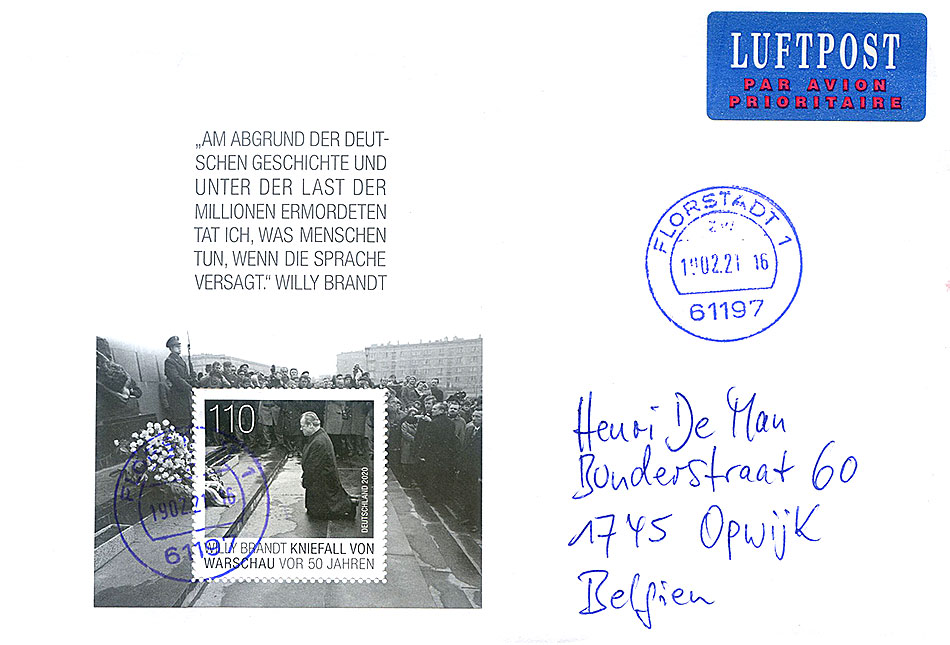 LUFTPOST
PAR AVION
PRIORITAIRE
„AM ABGRUND DER DEUT-
SCHEN GESCHICHTE UND
UNTER DER LAST DER
MILLIONEN ERMORDETEN
TAT ICH, WAS MENSCHEN
TUN, WENN DIE SPRACHE
VERSAGT.“ WILLY BRANDT
FLORSTADT 1
zw
19.02.21 16
61197
110
DEUTSCHLAND 2020
WILLY BRANDT KNIEFALL VON
WARSCHAU VOR 50 JAHREN
FLORSTADT 1
19.02.21 16
61197
Henri De Man
Bonderstraat 60
1745 Opwijk
Belgien